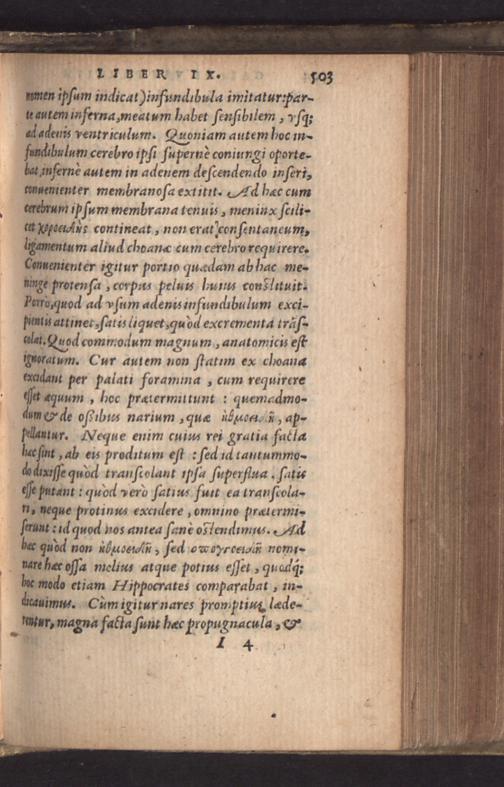 LIBER IX. 503
nomen ipsum indicat) infundibula imitatur: par-
te autem inferna, meatum habet sensibilem, vsq;
ad adenis ventriculum. Quoniam autem hoc in-
fundibulum cerebro ipsi supernè coniungi oporte-
bat, infernè autem in adenem descendendo inseri,
conuenienter membranosa extitit. Ad hæc cum
cerebrum ipsum membrana tenuis, meninx scili-
cet χοροειδὴς contineat, non erat consentaneum,
ligamentum aliud choanæ cum cerebro requirere.
Conuenienter igitur portio quædam ab hac me-
ninge protensa, corpus peluis huius constituit.
Porrò, quod ad vsum adenis infundibulum exci-
pientis attinet, satis liquet, quòd excrementa trās-
colat. Quod commodum magnum, anatomicis est
ignoratum. Cur autem non statim ex choana
excidant per palati foramina, cum requirere
esset æquum, hoc prætermittunt: quemadmo-
dum & de ossibus narium, quæ ἠθμοειδῆ, ap-
pellantur. Neque enim cuius rei gratia facta
hæc sint, ab eis proditum est: sed id tantummo-
do dixisse quòd transcolant ipsa superflua. satis
esse putant: quòd verò satius fuit ea transcola-
ri, neque protinus excidere, omnino prætermi-
serunt: id quod nos antea sanè ostendimus. Ad
hæc quòd non ἠθμοειδῆ, sed σπογγοειδῆ nomi-
nare hæc ossa melius atque potius esset, quodq́;
hoc modo etiam Hippocrates comparabat, in-
dicauimus. Cùm igitur nares promptius læde-
rentur, magna facta sunt hæc propugnacula, &
I 4